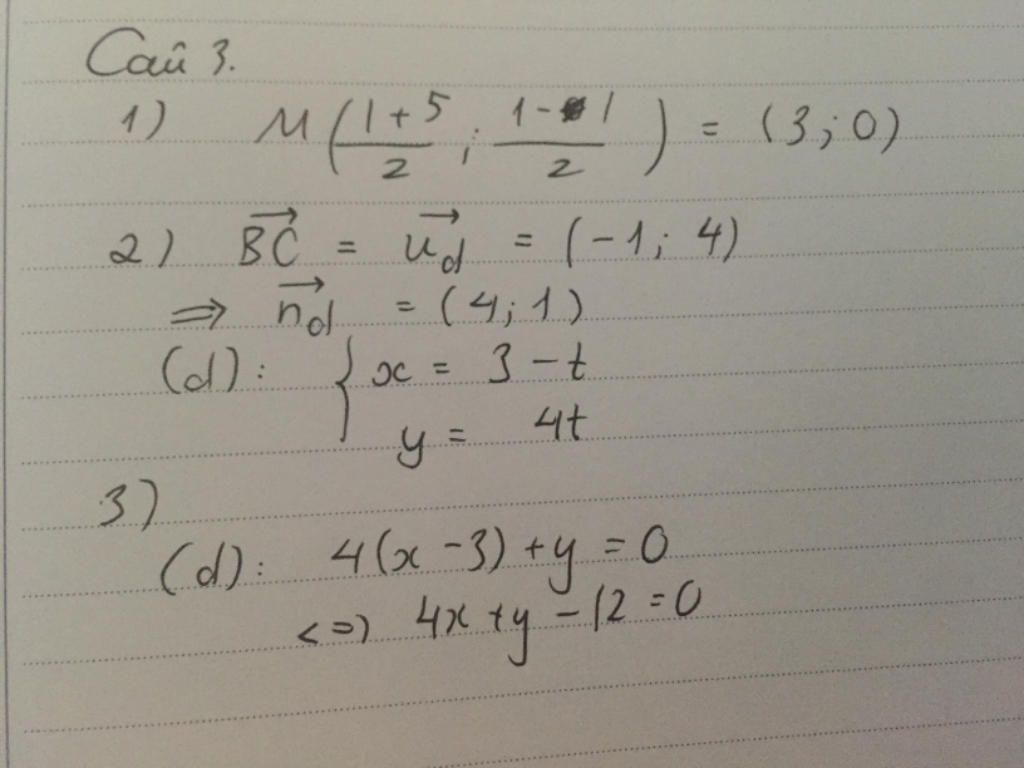 Câu 3.
1) M(\frac{1+5}{2}; \frac{1-1}{2}) = (3; 0)
2) \overrightarrow{BC} = \overrightarrow{u_d} = (-1; 4)
⇒ \overrightarrow{n_d} = (4; 1)
(d): { x = 3 - t
y = 4t
3)
(d): 4(x - 3) + y = 0
<=> 4x + y - 12 = 0